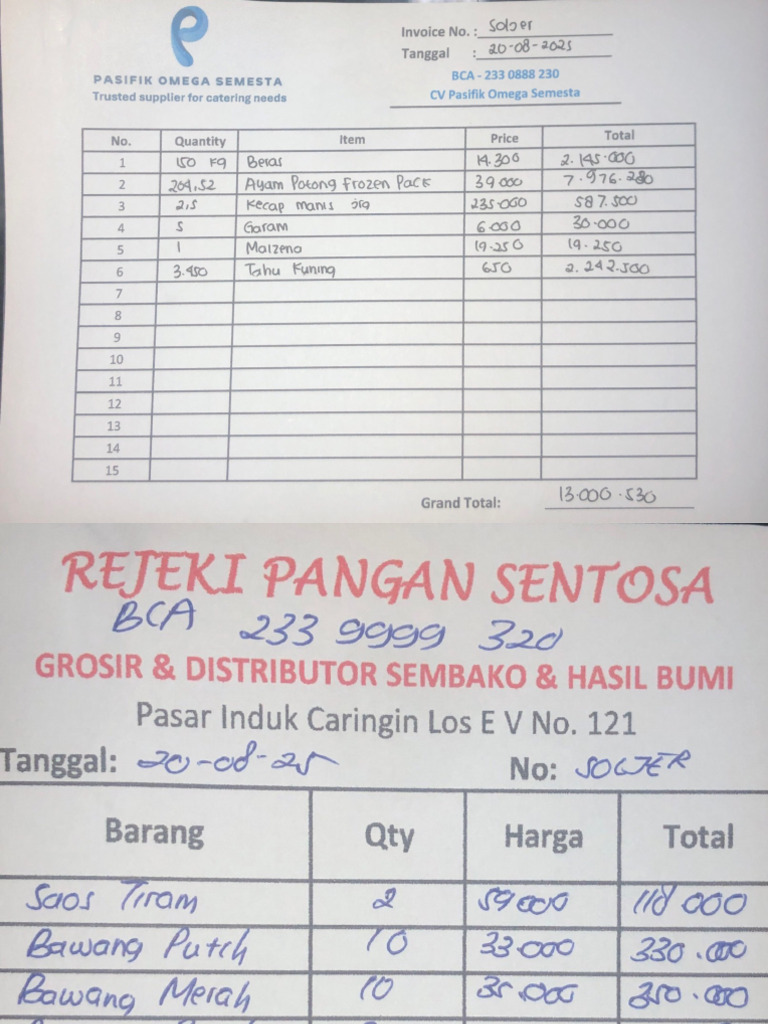 PASIFIK OMEGA SEMESTA
Trusted supplier for catering needs
Invoice No. : Soljer
Tanggal : 20-08-2025
BCA - 233 0888 230
CV Pasifik Omega Semesta
No. Quantity Item Price Total
1 150 kg Beras 14.300 2.145.000
2 204,52 Ayam Potong Frozen Pack 39.000 7.976.280
3 2,5 Kecap manis jrg 235.000 587.500
4 5 Garam 6.000 30.000
5 1 Maizena 19.250 19.250
6 3.450 Tahu Kuning 650 2.242.500
7
8
9
10
11
12
13
14
15
Grand Total: 13.000.530
REJEKI PANGAN SENTOSA
BCA 233 9999 320
GROSIR & DISTRIBUTOR SEMBAKO & HASIL BUMI
Pasar Induk Caringin Los E V No. 121
Tanggal: 20-08-25 No: SOLJER
Barang Qty Harga Total
Saos Tiram 2 59000 118 000
Bawang Putih 10 33.000 330.000
Bawang Merah 10 35.000 350.000